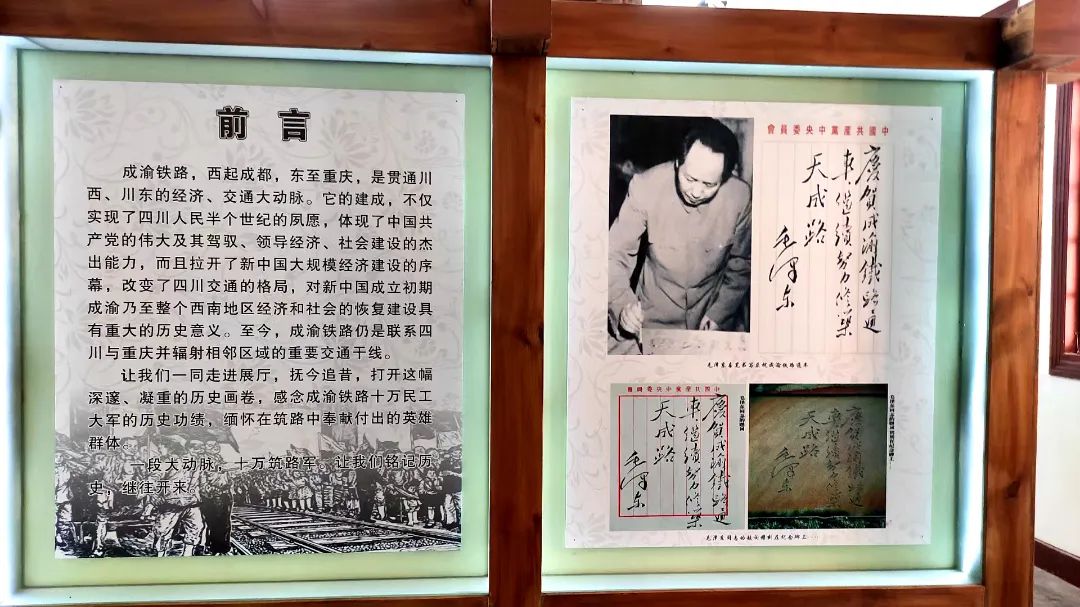 前言
成渝铁路，西起成都，东至重庆，是贯通川
西、川东的经济、交通大动脉。它的建成，不仅
实现了四川人民半个世纪的夙愿，体现了中国共
产党的伟大及其驾驭、领导经济、社会建设的杰
出能力，而且拉开了新中国大规模经济建设的序
幕，改变了四川交通的格局，对新中国成立初期
成渝乃至整个西南地区经济和社会的恢复建设具
有重大的历史意义。至今，成渝铁路仍是联系四
川与重庆并辐射相邻区域的重要交通干线。
让我们一同走进展厅，抚今追昔，打开这幅
深邃、凝重的历史画卷，感念成渝铁路十万民工
大军的历史功绩，缅怀在筑路中奉献付出的英雄
群体。
一段大动脉，十万筑路军。让我们铭记历
史，继往开来。
會員委央中黨產共國中
慶賀成渝鐵路通
車，繼續努力修築
天成路
毛澤东
會員委央中黨產共國中
慶賀成渝鐵路通
車繼續努力修築
天成路
毛澤东
慶賀成渝鐵路通
車繼續努力修築
天成路
毛澤东